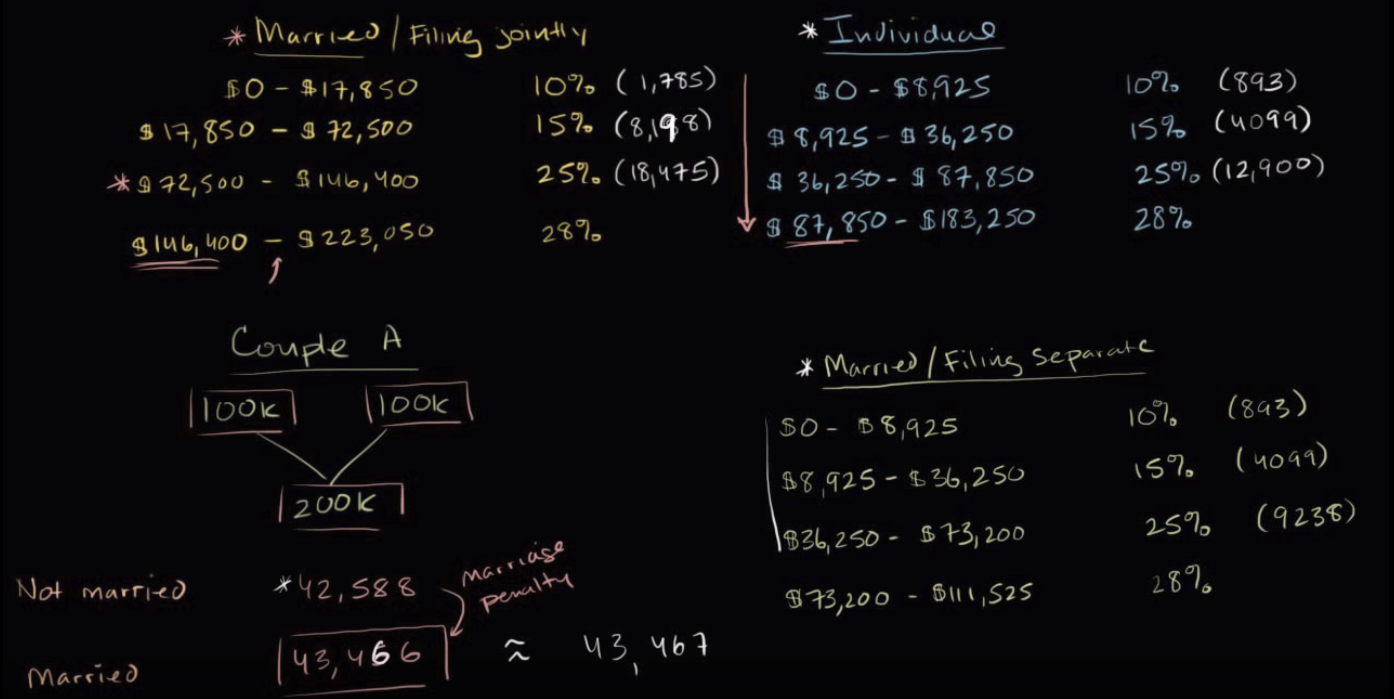 * Married / Filing jointly
$0 - $17,850 10% (1,785)
$17,850 - $72,500 15% (8,198)
* $72,500 - $146,400 25% (18,475)
$146,400 - $223,050 28%
* Individual
$0 - $8,925 10% (893)
$8,925 - $36,250 15% (4099)
$36,250 - $87,850 25% (12,900)
$87,850 - $183,250 28%
Couple A
100K 100K
200K
Not married *42,588
marriage
penalty
Married 43,466 ≈ 43,467
* Married / Filing Separate
$0 - $8,925 10% (893)
$8,925 - $36,250 15% (4099)
$36,250 - $73,200 25% (9238)
$73,200 - $111,525 28%